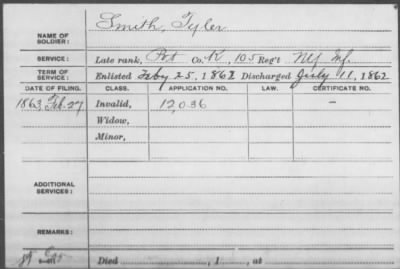 Smith, Tyler
NAME OF SOLDIER:
SERVICE: Late rank, Pvt Co. K, 105 Reg't NY Inf.
TERM OF SERVICE: Enlisted Feby 25, 1862 Discharged July 11, 1862
DATE OF FILING. CLASS. APPLICATION NO. LAW. CERTIFICATE NO.
1863, Feb. 27 Invalid, 12,036 –
Widow,
Minor,
ADDITIONAL SERVICES:
REMARKS:
Died , 1 , at